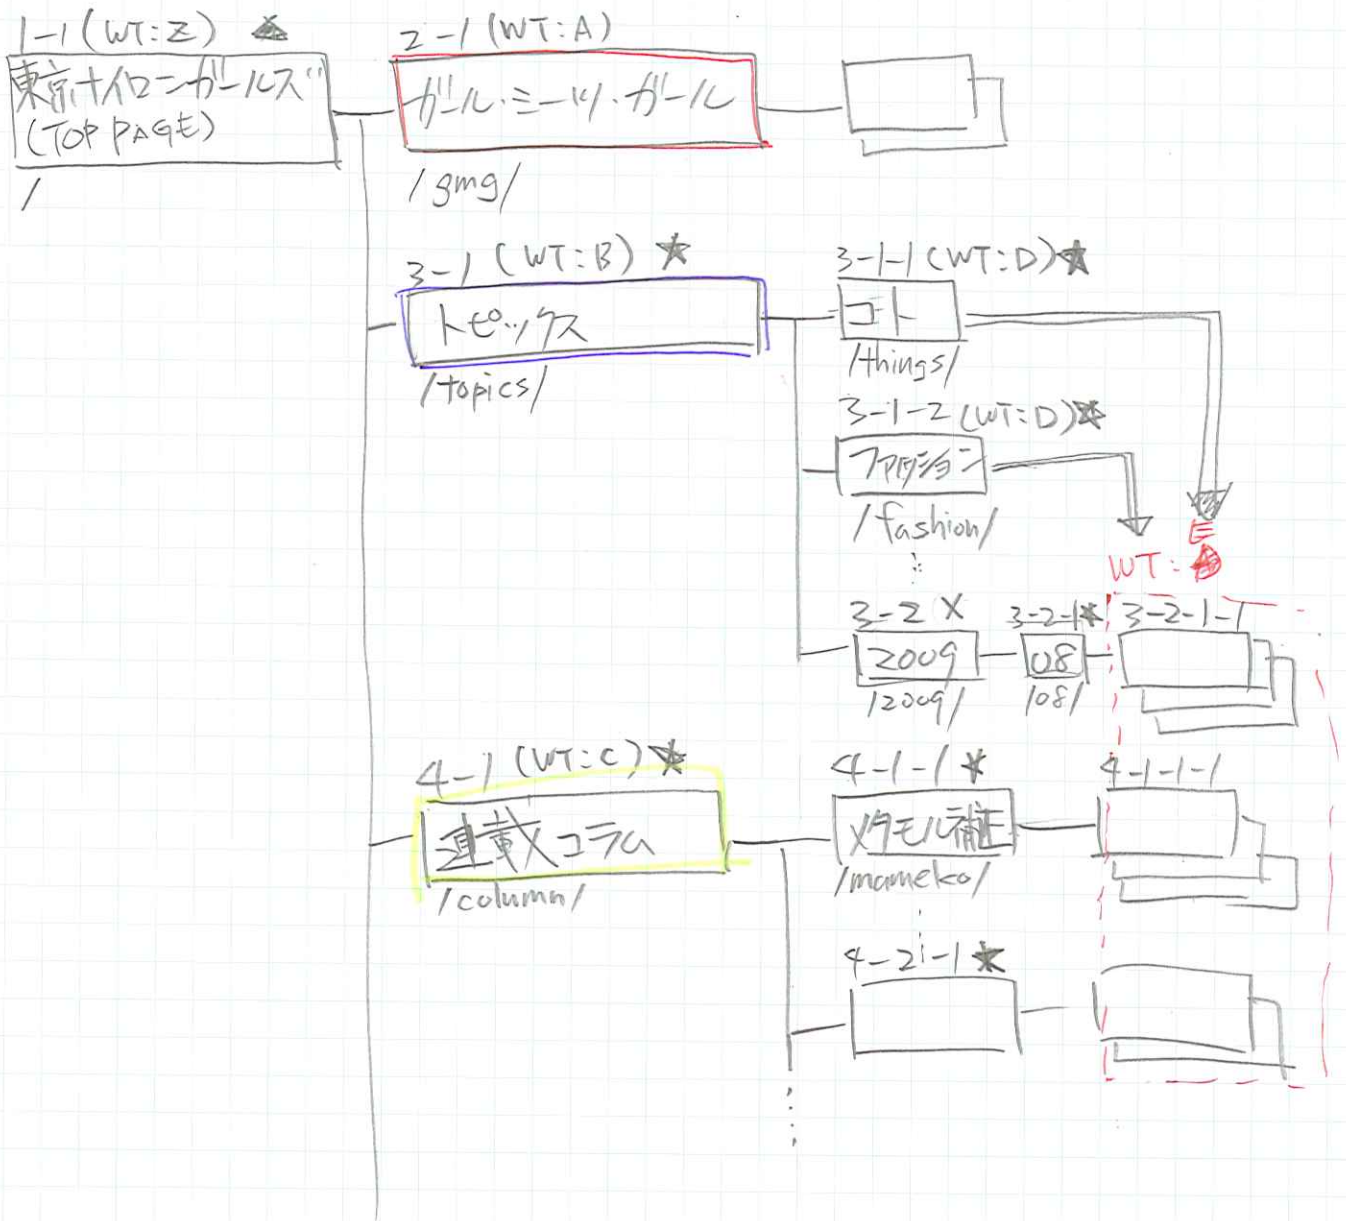 1-1 (WT:Z) ★
東京ナイロンガールズ
(TOP PAGE)
/
2-1 (WT:A)
ガール・ミーツ・ガール
/gmg/
3-1 (WT:B) ★
トピックス
/topics/
3-1-1 (WT:D) ★
コト
/things/
3-1-2 (WT:D) ★
ファッション
/fashion/
WT: E
3-2 X
2009
/2009/
3-2-1★
08
/08/
3-2-1-1
4-1 (WT:C) ★
連載×コラム
/column/
4-1-1 ★
メタモル補正
/mameko/
4-1-1-1
4-2-1 ★